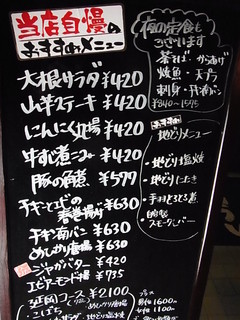 当店自慢の
おすすめメニュー
大根サラダ ¥420
山芋ステーキ ¥420
にんにく丸揚 ¥420
牛すじ煮こみ ¥420
豚の角煮 ¥577
チキンとエビの
春巻揚げ ¥630
チキン南バン ¥630
めんたい唐揚 ¥630
ジャガバター ¥420
エビアーモンド揚 ¥735
延岡コース ¥2100
夜の定食も
ございます
茶そば・からあげ
焼魚・天ぷら
刺身・チキン南バン
¥840~1575
おすすめ
地どりメニュー
・地どり塩焼
・地どりたたき
・手羽と玉ひも煮
自家製
スモークレバー